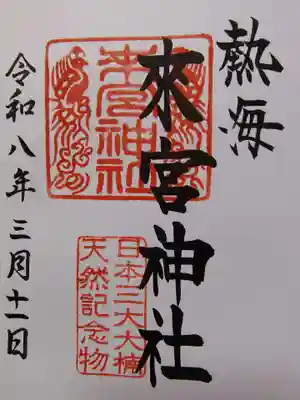 熱海
來宮神社
來宮神社
日本三大大楠
天然記念物
令和八年三月十一日